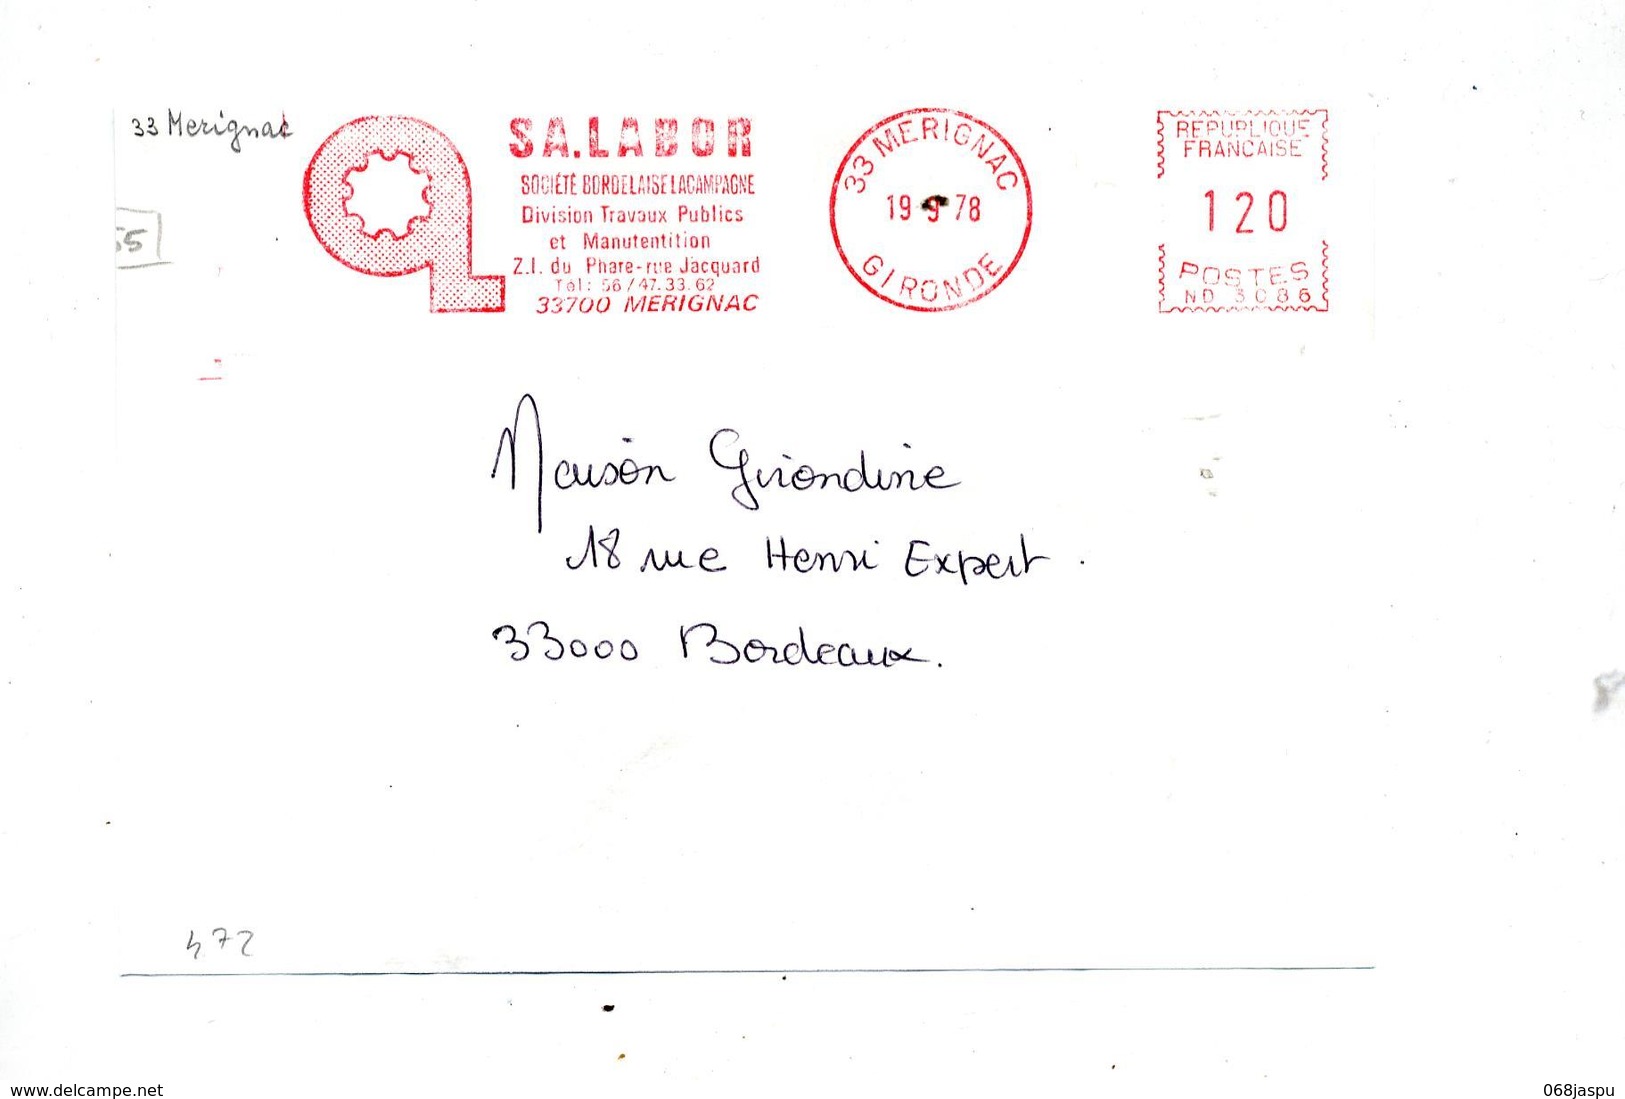 33 Merignac
SA.LABOR
SOCIÉTÉ BORDELAISE LACAMPAGNE
Division Travaux Publics
et Manutentition
Z.I. du Phare-rue Jacquard
Tél: 56/47.33.62
33700 MERIGNAC
33 MERIGNAC
19 9 78
GIRONDE
REPUBLIQUE
FRANCAISE
120
POSTES
ND 3086
55
Maison Girondine
18 rue Henri Expert.
33000 Bordeaux.
472
www.delcampe.net
068jaspu